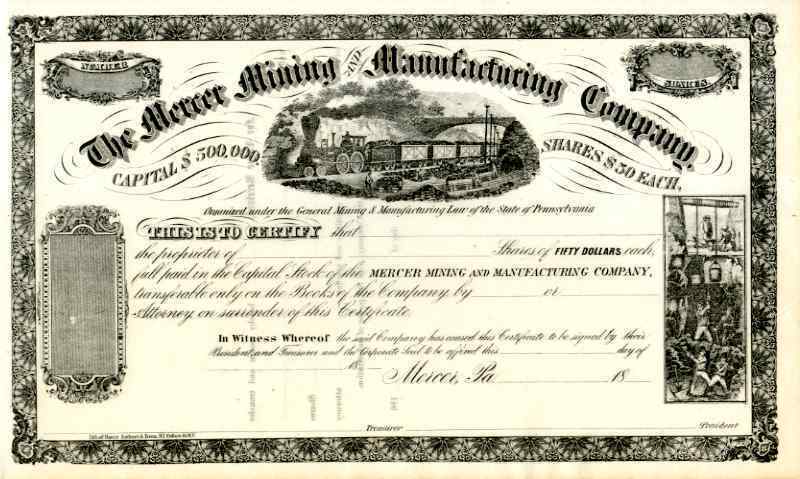 NUMBER
SHARES
The Mercer Mining AND Manufacturing Company,
CAPITAL $ 500,000
SHARES $ 50 EACH,
Organized under the General Mining & Manufacturing Law of the State of Pennsylvania
THIS IS TO CERTIFY that
the proprietor of Shares of FIFTY DOLLARS each,
full paid in the Capital Stock of the MERCER MINING AND MANUFACTURING COMPANY,
transferable only on the Books of the Company by or
Attorney on surrender of this Certificate.
In Witness Whereof the said Company has caused this Certificate to be signed by their
President and Treasurer and the Corporate Seal to be affixed this day of
18
Mercer, Pa. 18
Treasurer
President